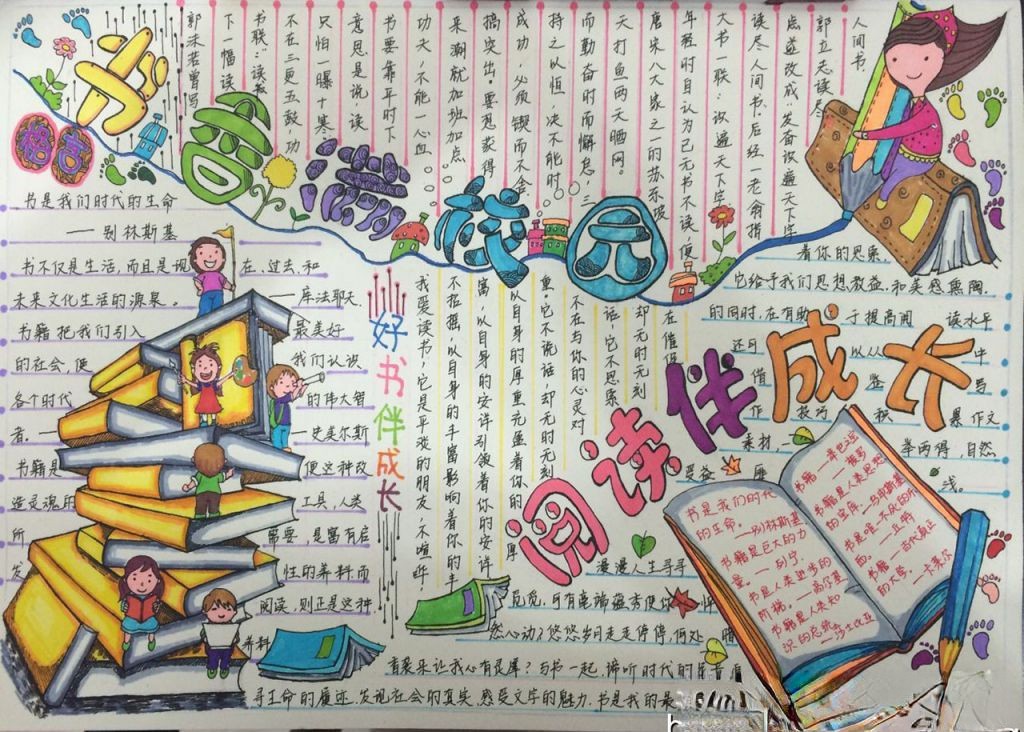 书香校园
阅读伴成长
好书伴成长
格言
书是我们时代的生命
——别林斯基
书不仅是生活,而且是现在、过去、和
未来文化生活的源泉。——库法耶夫
书籍把我们引入最美好
的社会,使我们认识
各个时代的伟大智
者。——史美尔斯
书籍是
造灵魂的工具,人类
所需要,是富有启
发性的养料,而
阅读,则正是这种
养料
郭沫若曾写
下一幅读
书联:读书
不在三更五鼓,功
只怕一曝十寒
意思是说,读
书要靠平时下
功夫,不能一心血
来潮就加班加点
搞突出,要想获得
成功 必须锲而不舍
持之以恒,决不能时
而勤奋时而懈怠,三
天打鱼两天晒网。
唐宋八大家之一的苏东坡
年轻时自认为已无书不读,便
大书一联:识遍天下字
读尽人间书,后经一老翁指
点遂改成:发奋识遍天下字
郭立志读尽
人间书
我爱读书,它是平淡的朋友,不喧哗
不招摇,以自身的丰富影响着你的丰
富,以自身的安详引领着你的安详
以自身的厚重充盈着你的厚
重,它不说话,却无时无刻
不在与你的心灵对
话,它不思索
却无时无刻
在催促
着你的思索,
它给予我们思想教益,和美感熏陶
的同时,在有助于提高阅读水平
还可以从中
借鉴写
作技巧 积累作文
素材,一举两得,自然
受益匪浅。
漫漫人生寻寻
觅觅,可有
然心动?悠悠岁月走走停停,何处
音袭来让我心有灵犀?与书一起,谛听时代的
寻生命的履迹,发现社会的真实,感受文字的魅力,书是我的最
书是我们时代
的生命。——别林斯基
书籍是巨大的力
量。——列宁
书是人类进步的
阶梯。——高尔基
书籍是人类知
识的总统 —莎士比亚
书籍是人类思想
的宝库
书是唯一不死的